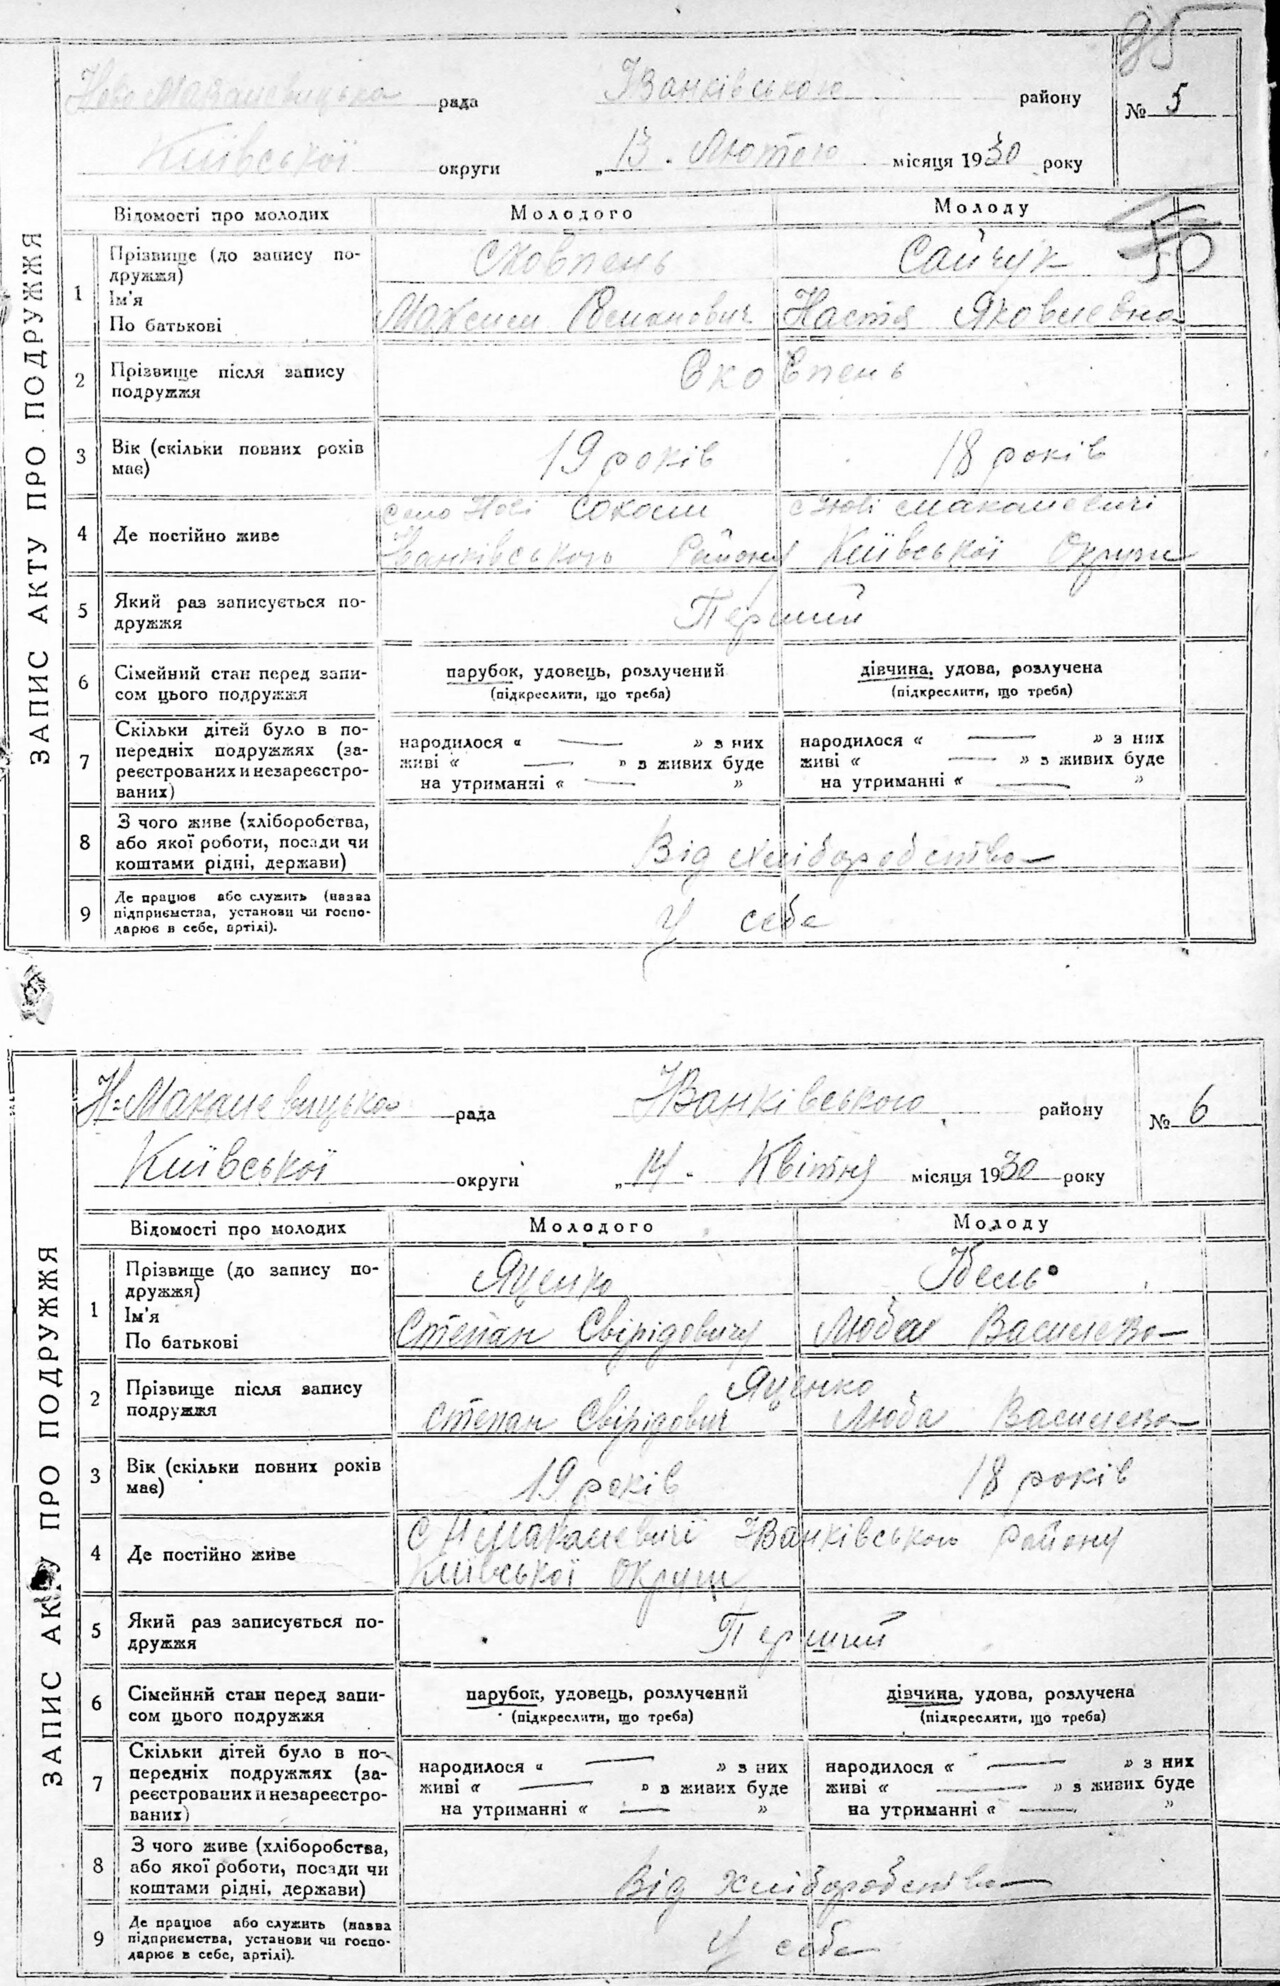 95
Ново Макалевицька рада Іванківського району № 5
Київської округи „13. Лютого місяця 1930 року
ЗАПИС АКТУ ПРО ПОДРУЖЖЯ
Відомості про молодих Молодого Молоду
50
1 Прізвище (до запису по-
дружжя) Сковпень Сайчук
Ім'я
По батькові Максим Романович Настя Яковлевна
2 Прізвище після запису
подружжя Сковпень
3 Вік (скільки повних років
має) 19 років 18 років
4 Де постійно живе Село Нові Соколи с Нові Макалевичі
Іванківського Району Київської Округи
5 Який раз записується по-
дружжя Перший
6 Сімейний стан перед запи-
сом цього подружжя
парубок, удовець, розлучений дівчина, удова, розлучена
(підкреслити, що треба) (підкреслити, що треба)
7 Скільки дітей було в по-
передніх подружжях (за-
реєстрованих и незареєстро-
ваних)
народилося « — » з них народилося « — » з них
живі « — » в живих буде живі « — » з живих буде
на утриманні « — » на утриманні « — »
8 З чого живе (хліборобства,
або якої роботи, посади чи
коштами рідні, держави) Від хліборобства
9 Де працює або служить (назва
підприємства, установи чи госпо-
дарює в себе, артілі). У себе
Н-Макалевицька рада Іванківського району № 6
Київської округи „14. Квітня місяця 1930 року
ЗАПИС АКТУ ПРО ПОДРУЖЖЯ
Відомості про молодих Молодого Молоду
1 Прізвище (до запису по-
дружжя) Яценко
Ім'я
По батькові Степан Свірідович Люба Василевна
2 Прізвище після запису
подружжя Яценко
Степан Свірідович Люба Василевна
3 Вік (скільки повних років
має) 19 років 18 років
4 Де постійно живе С Н Макалевичі Іванківського Району
Київської Округи
5 Який раз записується по-
дружжя Перший
6 Сімейний стан перед запи-
сом цього подружжя
парубок, удовець, розлучений дівчина, удова, розлучена
(підкреслити, що треба) (підкреслити, що треба)
7 Скільки дітей було в по-
передніх подружжях (за-
реєстрованих и незареєстро-
ваних)
народилося « — » з них народилося « — » з них
живі « — » в живих буде живі « — » в живих буде
на утриманні « — » на утриманні « — »
8 З чого живе (хліборобства,
або якої роботи, посади чи
коштами рідні, держави) Від хліборобства
9 Де працює або служить (назва
підприємства, установи чи госпо-
дарює в себе, артілі). У себе